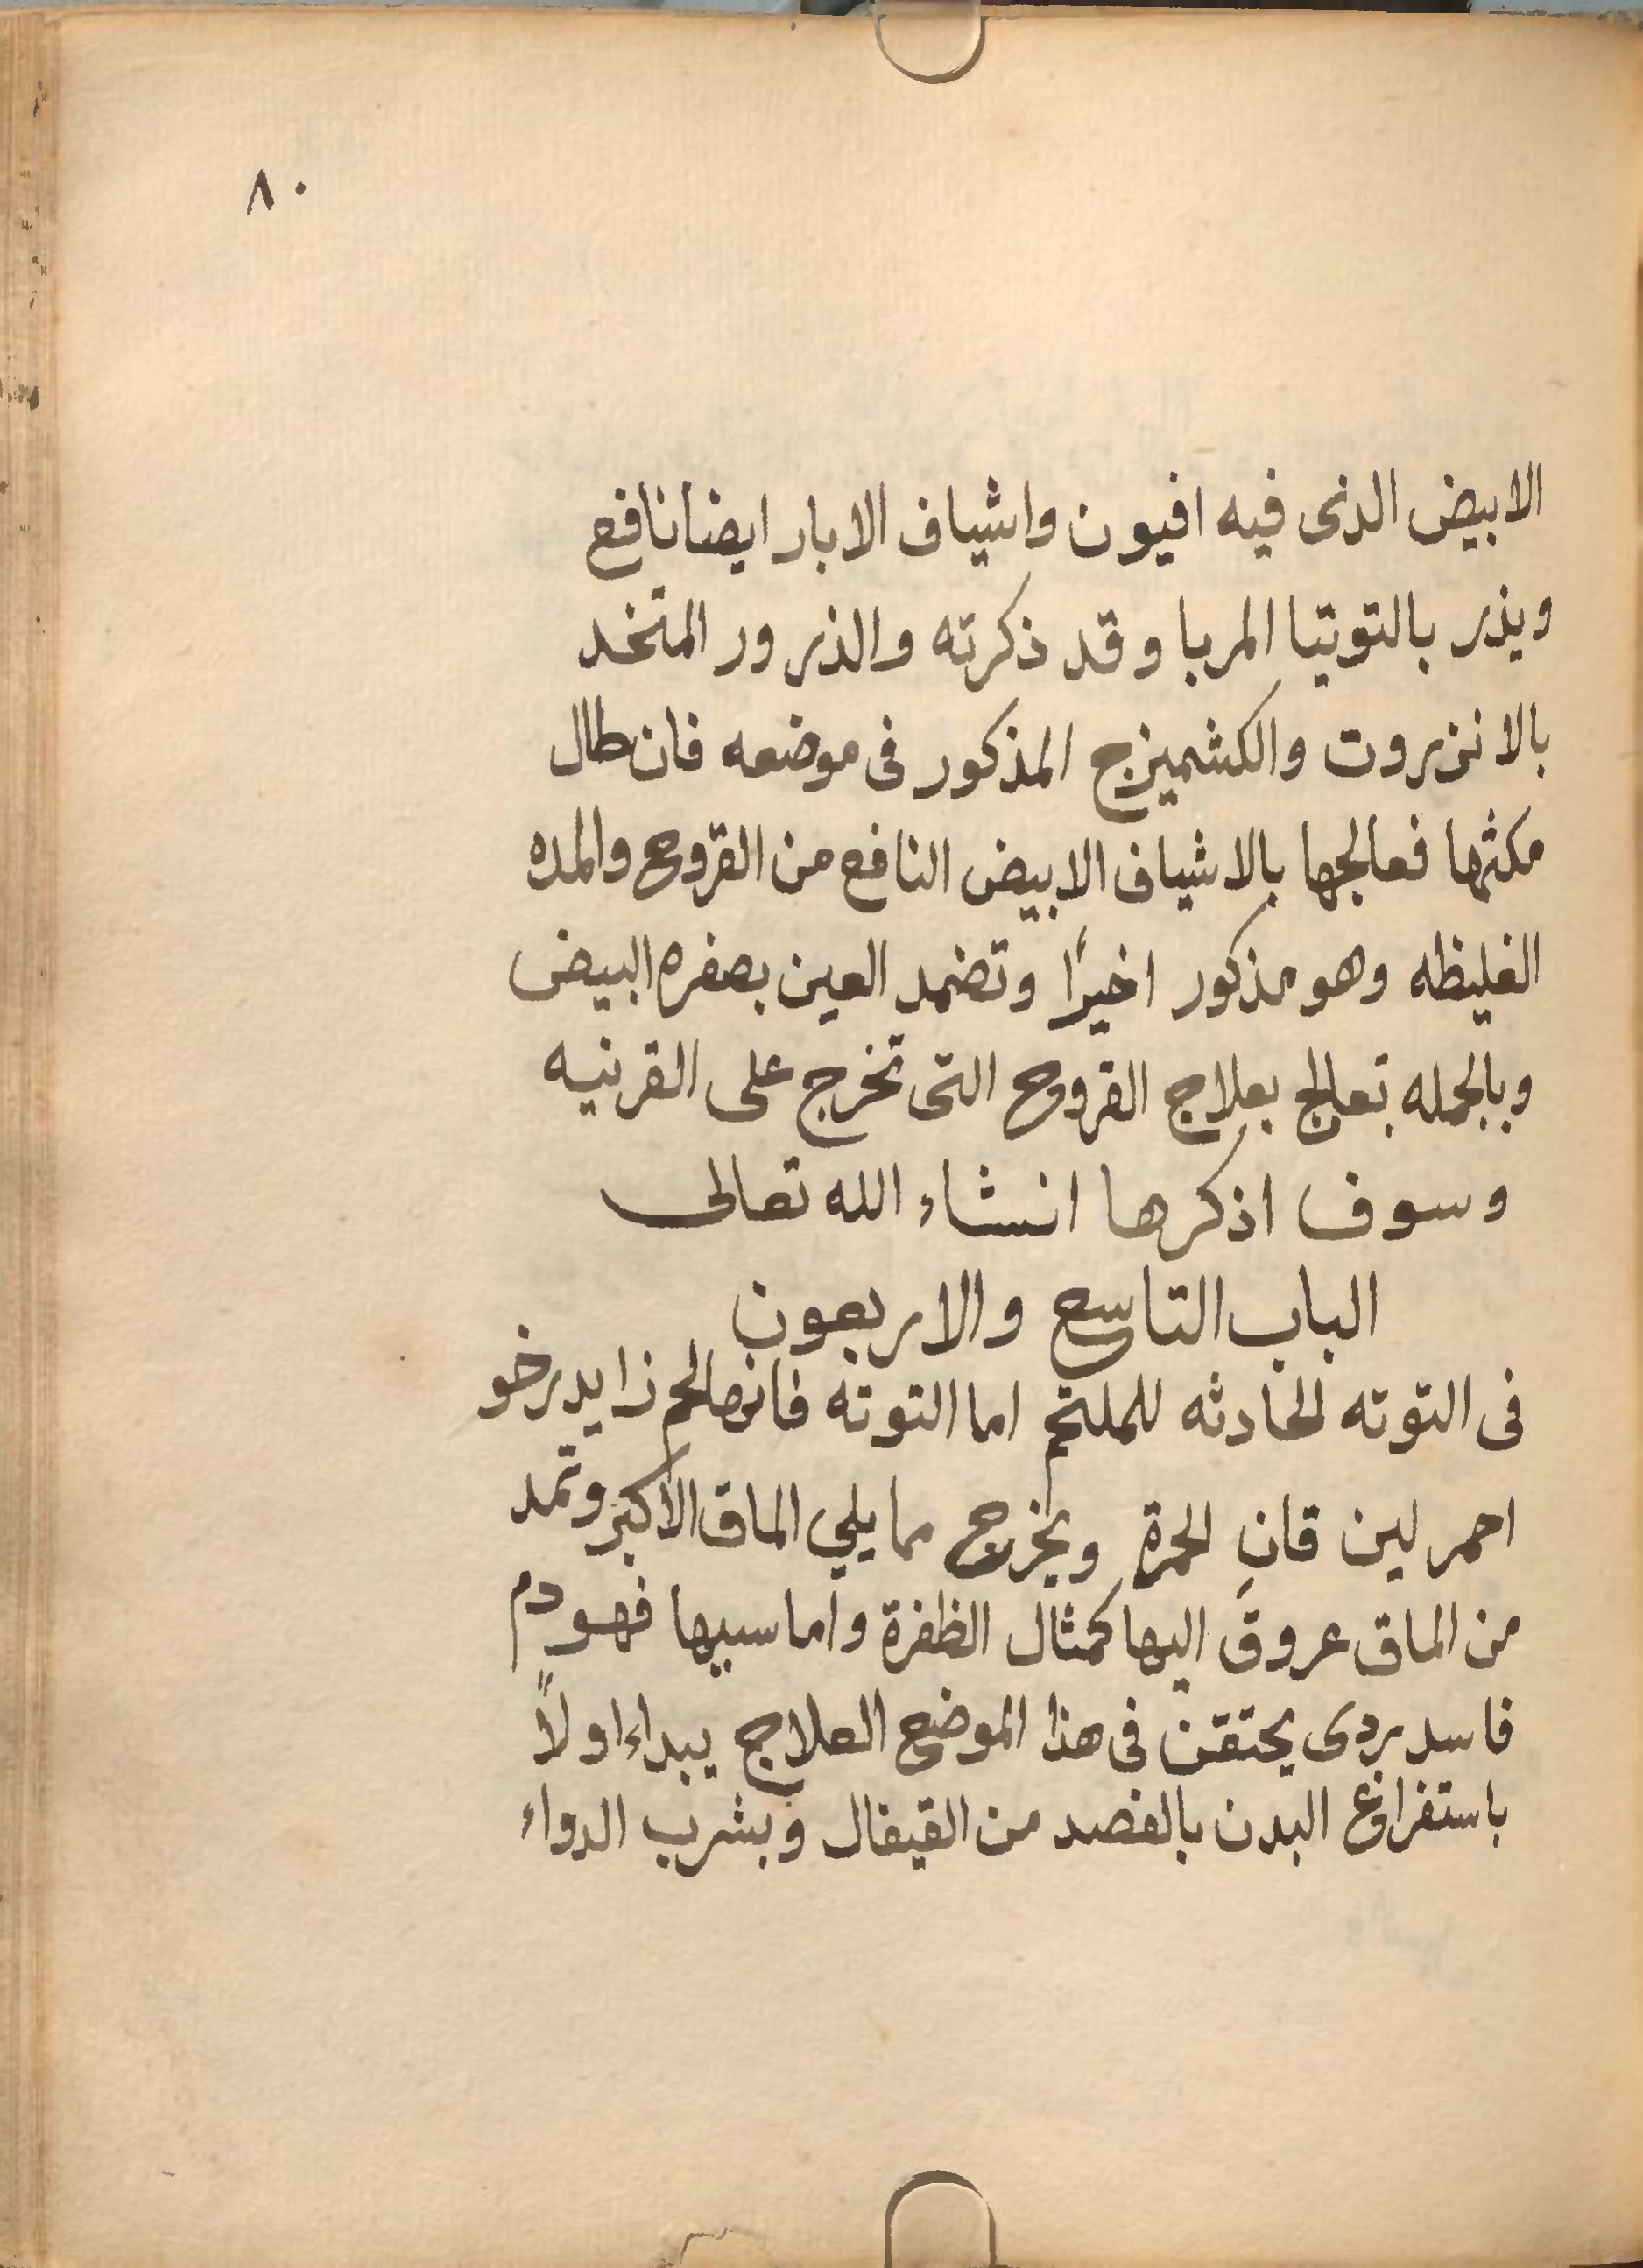 ٨٠
الابيض الذى فيه افيون واشياف الابار ايضا نافع
ويذر بالتوتيا المربا وقد ذكرته والذرور المتخد
بالانزروت والكشميزج المذكور فى موضعه فان طال
مكثها فعالجها بالاشياف الابيض النافع من القروح والمده
الغليظه وهو مذكور اخيرًا وتضمد العين بصفره البيض
وبالجمله تعالج بعلاج القروح التى تخرج على القرنيه
وسوف اذكرها انشاء الله تعالى
الباب التاسع والاربعون
فى التوته الحادثه للملتحم اما التوته فانها لحم زايد رخو
احمر لين قانِ الحمرة ويخرج مما يلي الماق الاكبر وتمد
من الماق عروق اليها كمثال الظفرة واما سببها فهو دم
فاسد ردى يحتقن فى هذا الموضع العلاج يبداء اولاً
باستفراغ البدن بالفصد من القيفال وبشرب الدواء